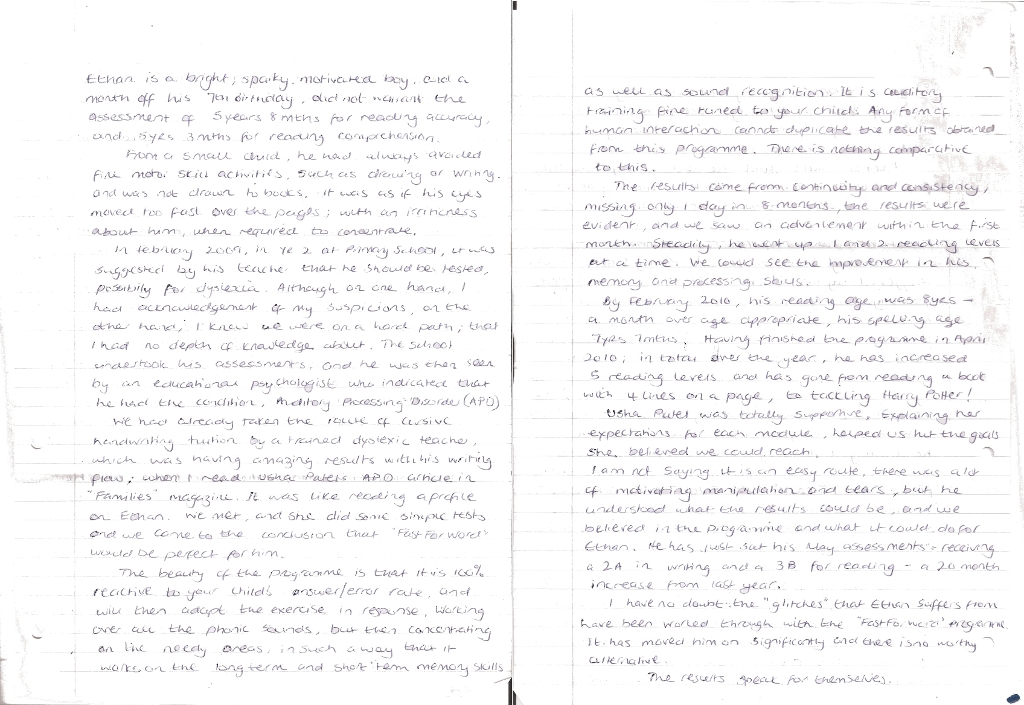 Ethan is a bright, sparky, motivated boy, and a
month off his 7th birthday, did not warrant the
assessment of 5years 8mths for reading accuracy,
and 5yrs 3mths for reading comprehension.
From a small child, he had always avoided
fine motor skill activities, such as drawing or writing,
and was not drawn to books. It was as if his eyes
moved too fast over the pages; with an irritiness
about him, when required to concentrate.
In february 2009, in Yr 2 at Primary School, it was
suggested by his teacher that he should be tested,
possibly for dyslexia. Although on one hand, I
had acknowledgement of my suspicions, on the
other hand, I knew we were on a hard path; that
I had no depth of knowledge about. The school
undertook his assessments, and he was then seen
by an educational psychologist who indicated that
he had the condition, Auditory Processing Disorder (APD)
We had already taken the route of cursive
handwriting tuition by a trained dyslexic teacher,
which was having amazing results with his writing
flow; when I read Usha Patel's APD article in
"Families" magazine. It was like reading a profile
on Ethan. We met, and she did some simple tests
and we came to the conclusion that 'Fast For Word'
would be perfect for him.
The beauty of the programme is that it is 100%
reactive to your child's answer/error rate, and
will then adapt the exercise in response, working
over all the phonic sounds, but then concentrating
on the needy areas, in such a way that it
works on the long term and short term memory skills
as well as sound recognition. It is auditory
training fine tuned to your child. Any form of
human interaction cannot duplicate the results obtained
from this programme. There is nothing comparative
to this.
The results come from continuity and consistency,
missing only 1 day in 8 months, the results were
evident, and we saw an advancement within the first
month. Steadily, he went up 1 and 2 reading levels
at a time. We could see the improvement in his
memory and processing skills.
By February 2010, his reading age was 8yrs -
a month over age appropriate, his spelling age
7yrs 7mths. Having finished the programme in April
2010; in total over the year, he has increased
5 reading levels and has gone from reading a book
with 4 lines on a page, to tackling Harry Potter!
Usha Patel was totally supportive, explaining her
expectations for each module, helped us hit the goals
she believed we could reach.
I am not saying it is an easy route, there was a lot
of motivating manipulation and tears, but he
understood what the results could be, and we
believed in the programme and what it could do for
Ethan. He has just sat his May assessments - receiving
a 2A in writing and a 3B for reading - a 20 month
increase from last year.
I have no doubt the "glitches" that Ethan suffers from
have been worked through with the 'Fast For Word' programme.
It has moved him on significantly and there is no worthy
alternative.
The results speak for themselves.